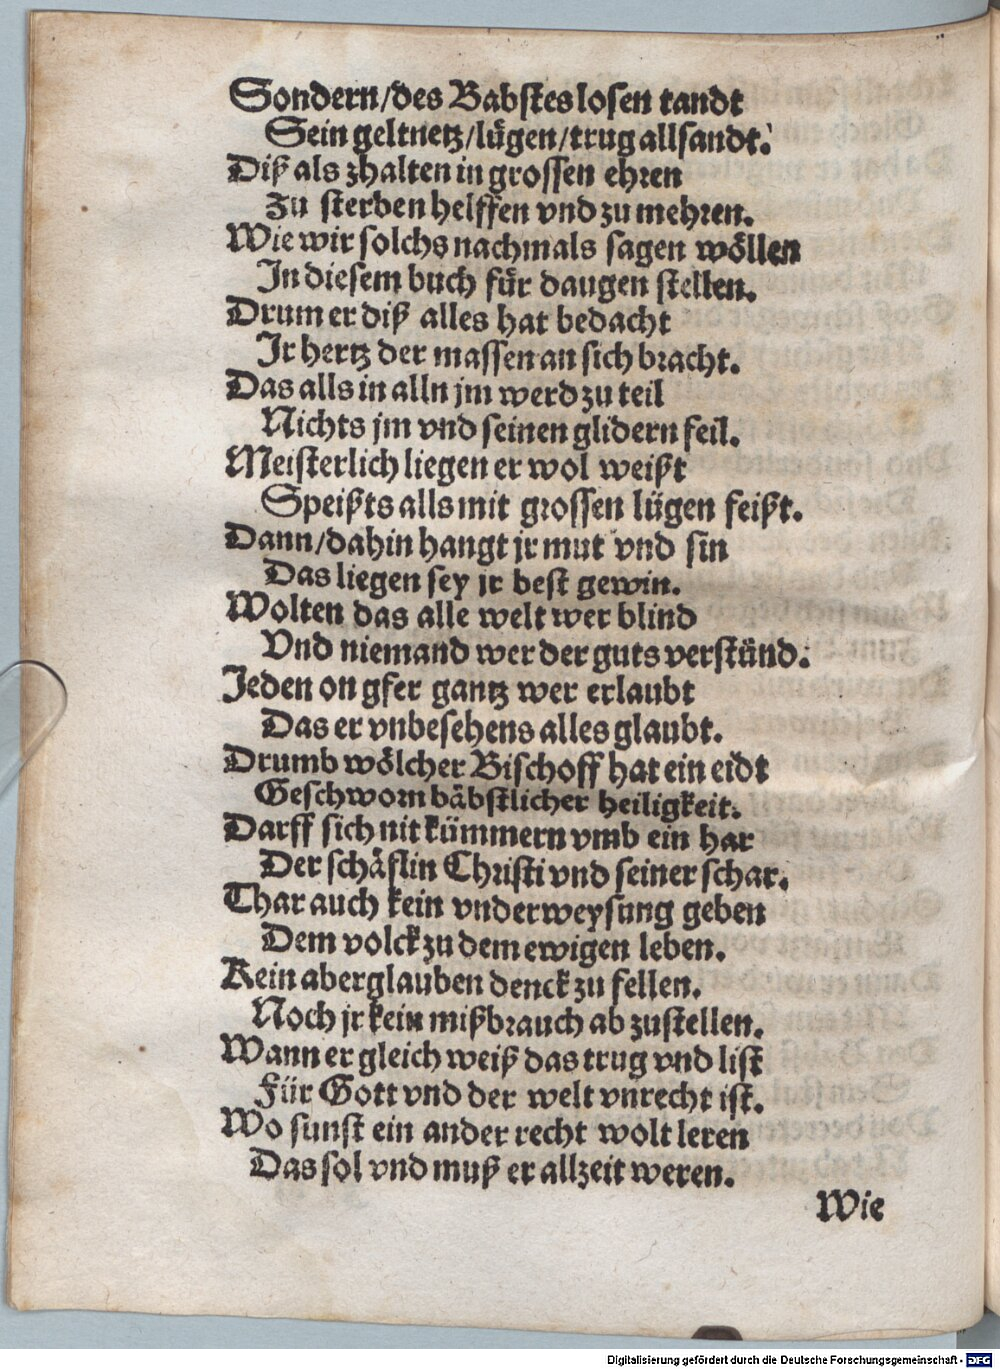 Sondern/des Babstes losen tandt
Sein geltnetz/lügen/trug allsandt.
Diß als zhalten in grossen ehren
Zu sterben helffen vnd zu mehren.
Wie wir solchs nachmals sagen wöllen
In diesem buch für daugen stellen.
Drum er diß alles hat bedacht
Ir hertz der massen an sich bracht.
Das alls in alln jm werd zu teil
Nichts jm vnd seinen glidern feil.
Meisterlich liegen er wol weißt
Speißts alls mit grossen lügen feißt.
Dann/dahin hangt jr mut vnd sin
Das liegen sey jr best gewin.
Wolten das alle welt wer blind
Vnd niemand wer der guts verstünd.
Jeden on gfer gantz wer erlaubt
Das er vnbesehens alles glaubt.
Drumb wölcher Bischoff hat ein eidt
Geschworn bäbstlicher heiligkeit.
Darff sich nit kümmern vmb ein har
Der schäflin Christi vnd seiner schar.
Thar auch kein vnderweysung geben
Dem volck zu dem ewigen leben.
Kein aberglauben denck zu fellen.
Noch jr kein mißbrauch ab zustellen.
Wann er gleich weiß das trug vnd list
Für Gott vnd der welt vnrecht ist.
Wo sunst ein ander recht wolt leren
Das sol vnd muß er allzeit weren.
Wie
Digitalisierung gefördert durch die Deutsche Forschungsgemeinschaft - DFG